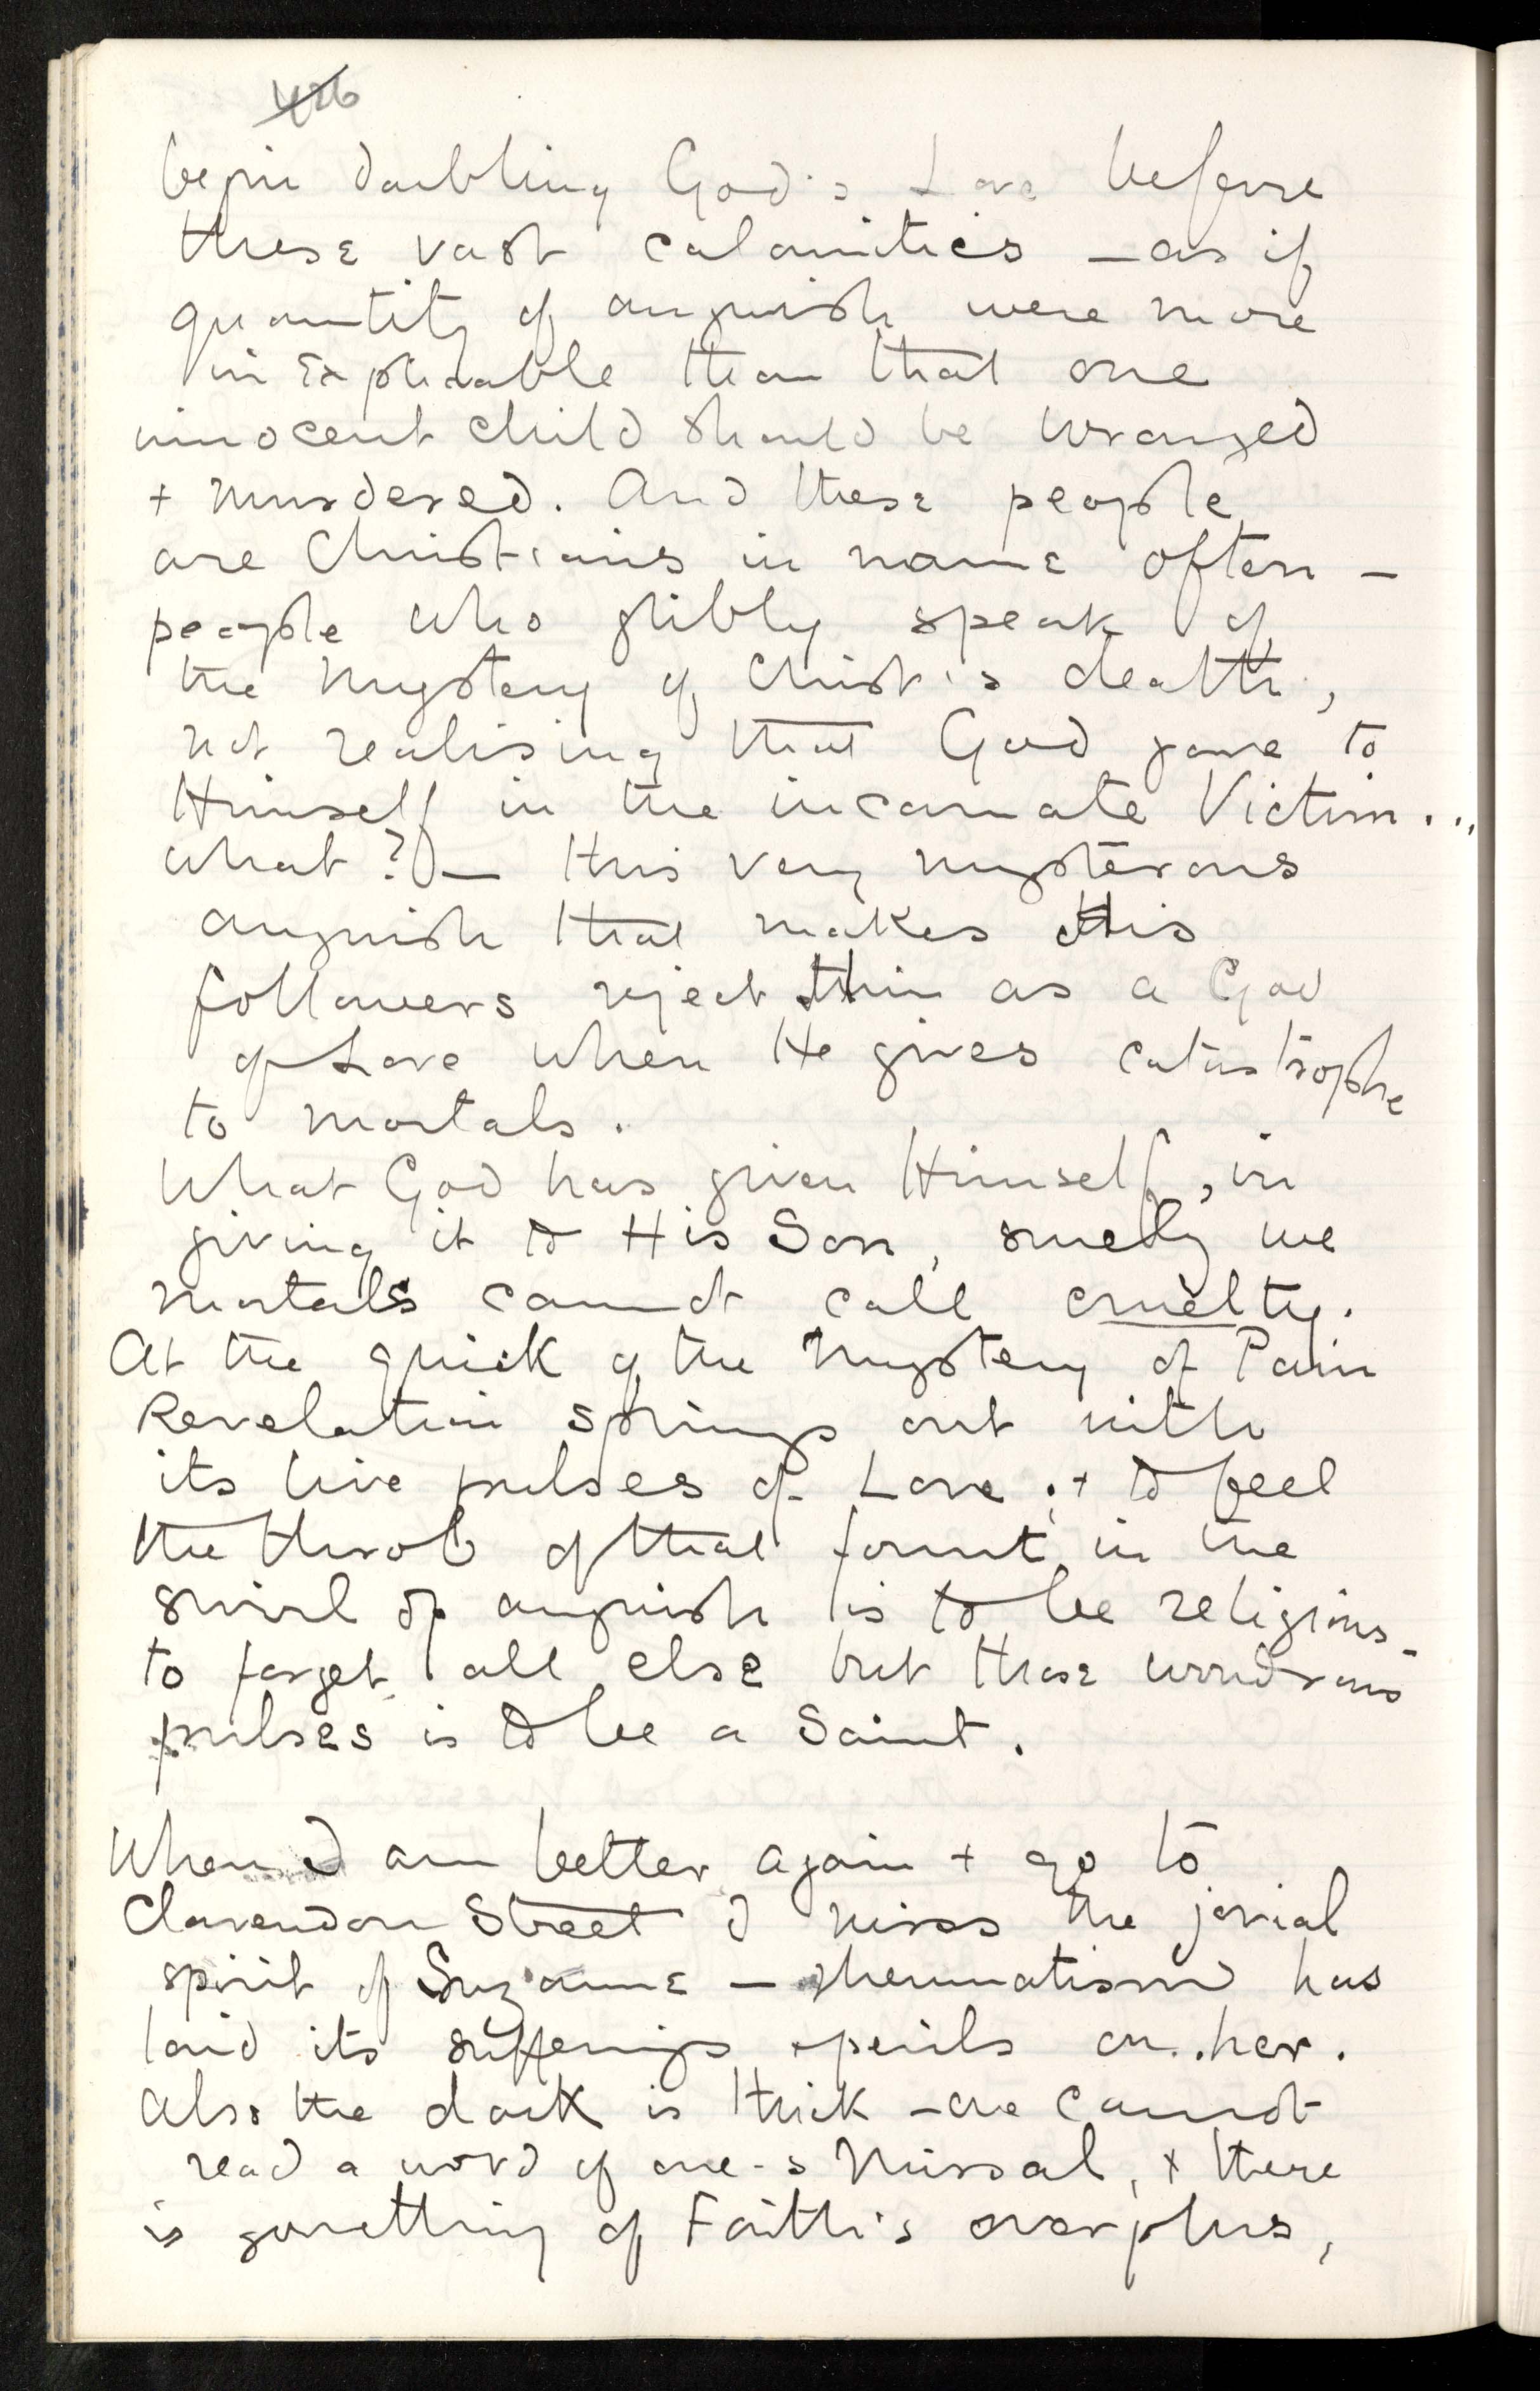 begin doubting God's Love before
these vast calamities — as if
quantity of anguish were more
inexplicable than that one
innocent child should be wronged
+ murdered. And these people
are Christians in name often —
people who glibly speak of
the mystery of Christ's death,
not realising that God gave to
Himself in the incarnate Victim...
what? — this very mysterous
anguish that makes His
followers reject Him as a God
of Love when He gives catastrophe
to mortals.
What God has given Himself, in
giving it to His Son, surely we
mortals cannot call cruelty.
At the quick of the Mystery of Pain
Revelation springs out with
its live pulses of Love; + to feel
the throb of that fount in the
swirl of anguish is to be religious —
to forget all else but those wondrous
pulses is to be a Saint.
When I am better again + go to
Clarendon Street I miss the jovial
spirit of Suzanne — rheumatism has
laid its sufferings + perils on her.
Also the dark is thick — one cannot
read a word of one's Missal, + there
is something of Faith's overplus,